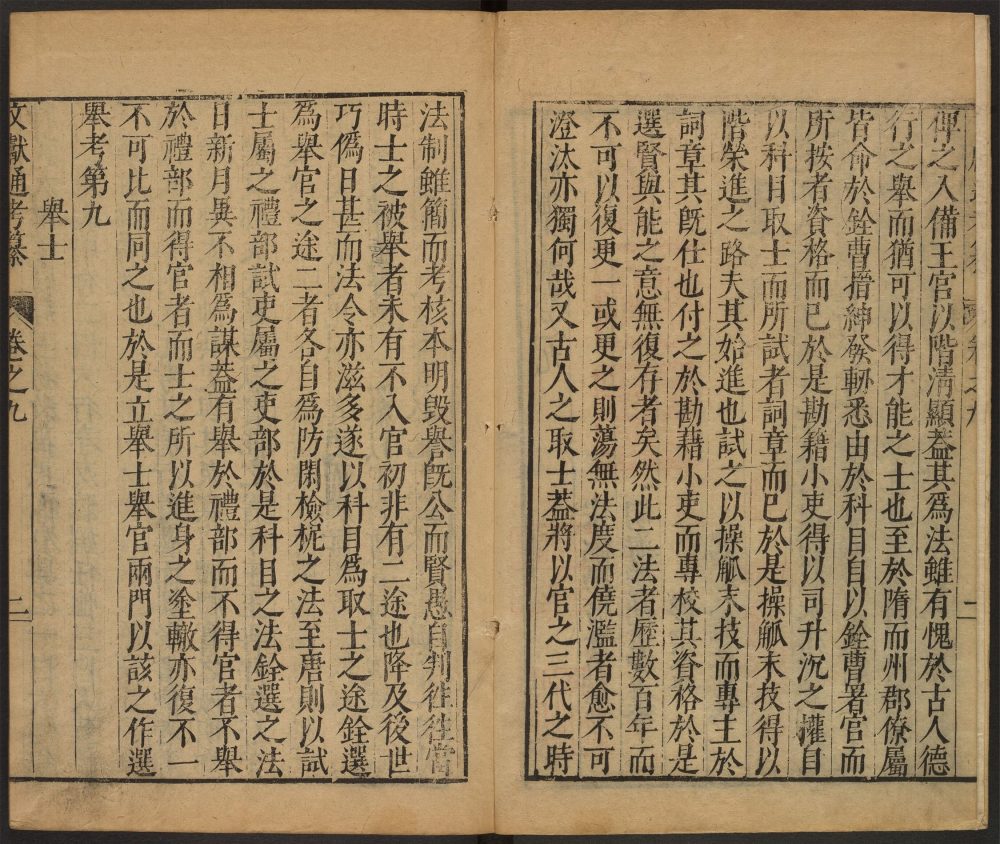 俾之入備王官以階清顯蓋其爲法雖有愧於古人德
行之舉而猶可以得才能之士也至於隋而州郡僚屬
皆命於銓曹搢紳發軔悉由於科目自以銓曹署官而
所按者資格而已於是勘籍小吏得以司升沉之權自
以科目取士而所試者詞章而已於是操觚末技得以
階榮進之路夫其始進也試之以操觚末技而專主於
詞章其旣仕也付之於勘藉小吏而專校其資格於是
選賢與能之意無復存者矣然此二法者歷數百年而
不可以復更一或更之則蕩無法度而僥濫者愈不可
澄汰亦獨何哉又古人之取士蓋將以官之三代之時
法制雖簡而考核本明毀譽旣公而賢愚自判往往當
時士之被舉者未有不入官初非有二途也降及後世
巧僞日甚而法令亦滋多遂以科目爲取士之途銓選
爲舉官之途二者各自爲防閑檢柅之法至唐則以試
士屬之禮部試吏屬之吏部於是科目之法銓選之法
日新月異不相爲謀蓋有舉於禮部而不得官者不舉
於禮部而得官者而士之所以進身之塗轍亦復不一
不可比而同之也於是立舉士舉官兩門以該之作選
舉考第九
舉士
文獻通考纂 卷之九 二